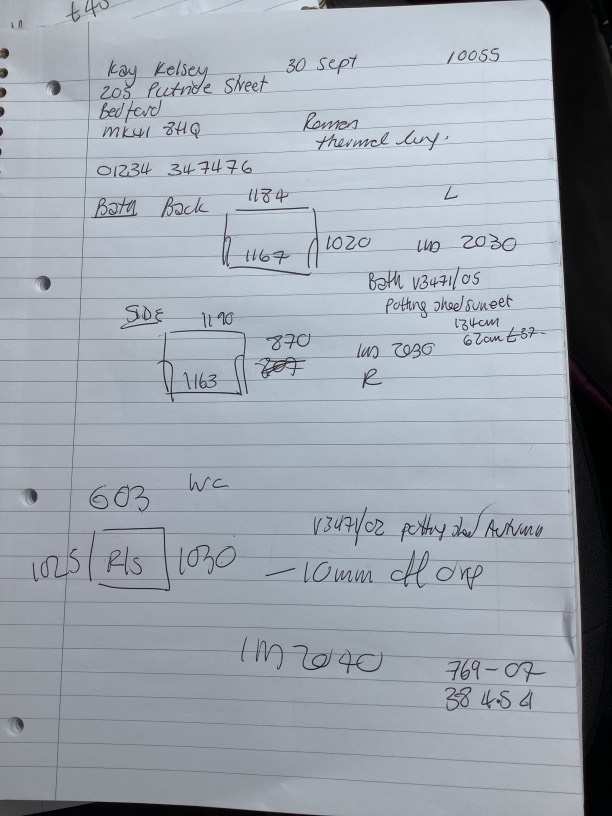 £40
Kay Kelsey 30 Sept 10055
203 Putnoe Street
Bedford
MK41 8HQ
Roman
thermal
01234 347476
Bath Back 1184 L
1167 1020 2030
Bath V3471/05
Potting shed sunset
134cm
62cm £37-
SIDE 1190
870
1163 2030
R
603 WC
V3471/02 Potting shed Autumn
1025 R/S 1030 - 10mm off drop
2040
769-07
384.54